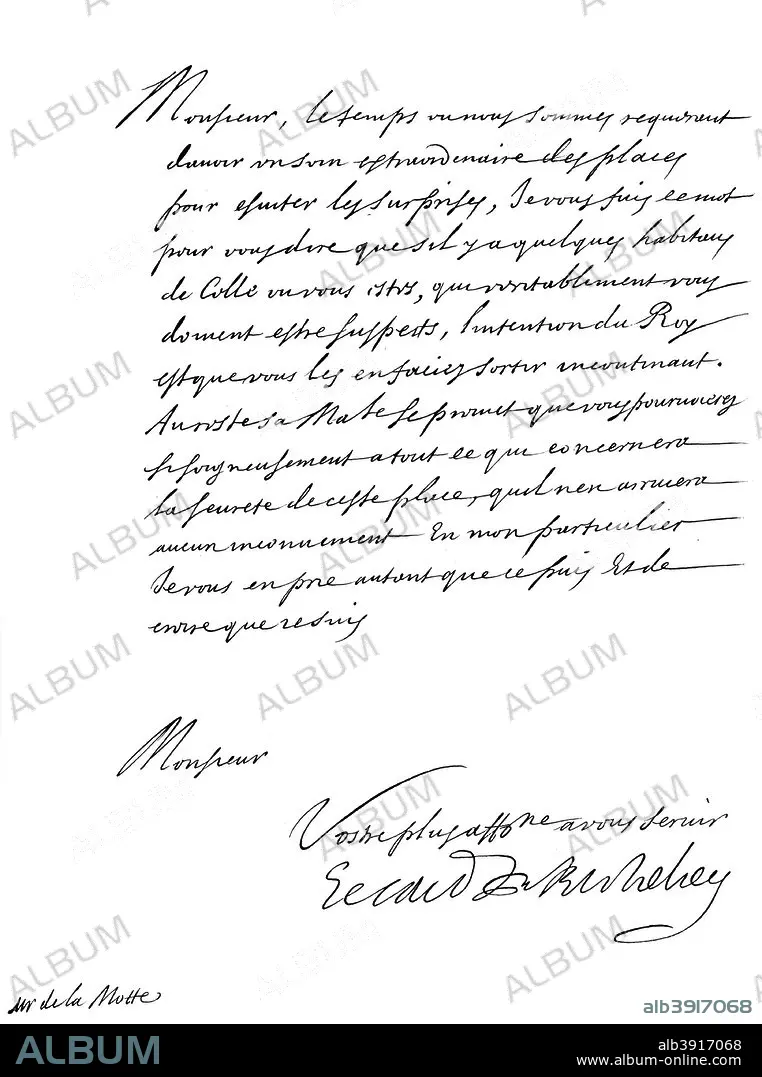 Monsieur, le temps ou nous sommes requerant
d'avoir un soin extraordinaire des places
pour esuiter les surprises, Je vous fais ce mot
pour vous dire que s'il y a quelques habitans
de Celle ou vous estes, que veritablement vous
doivent estre suspects, l'intention du Roy
est que vous les en faciez sortir incontinant.
Au reste sa Ma.te se promet que vous pourvoierez
si soigneusement a tout ce que concernera
la seureté de ceste place, quil n'en arrivera
aucun inconvenient En mon particulier
Je vous en prie autant que ie puis Et de
croire que ie suis
Monsieur
Vostre plus aff.ne a vous servir
Le Card. de Richelieu
sr de la Motte
ALBUM
alb3917068
ALBUM
alb3917068
www.album-online.com